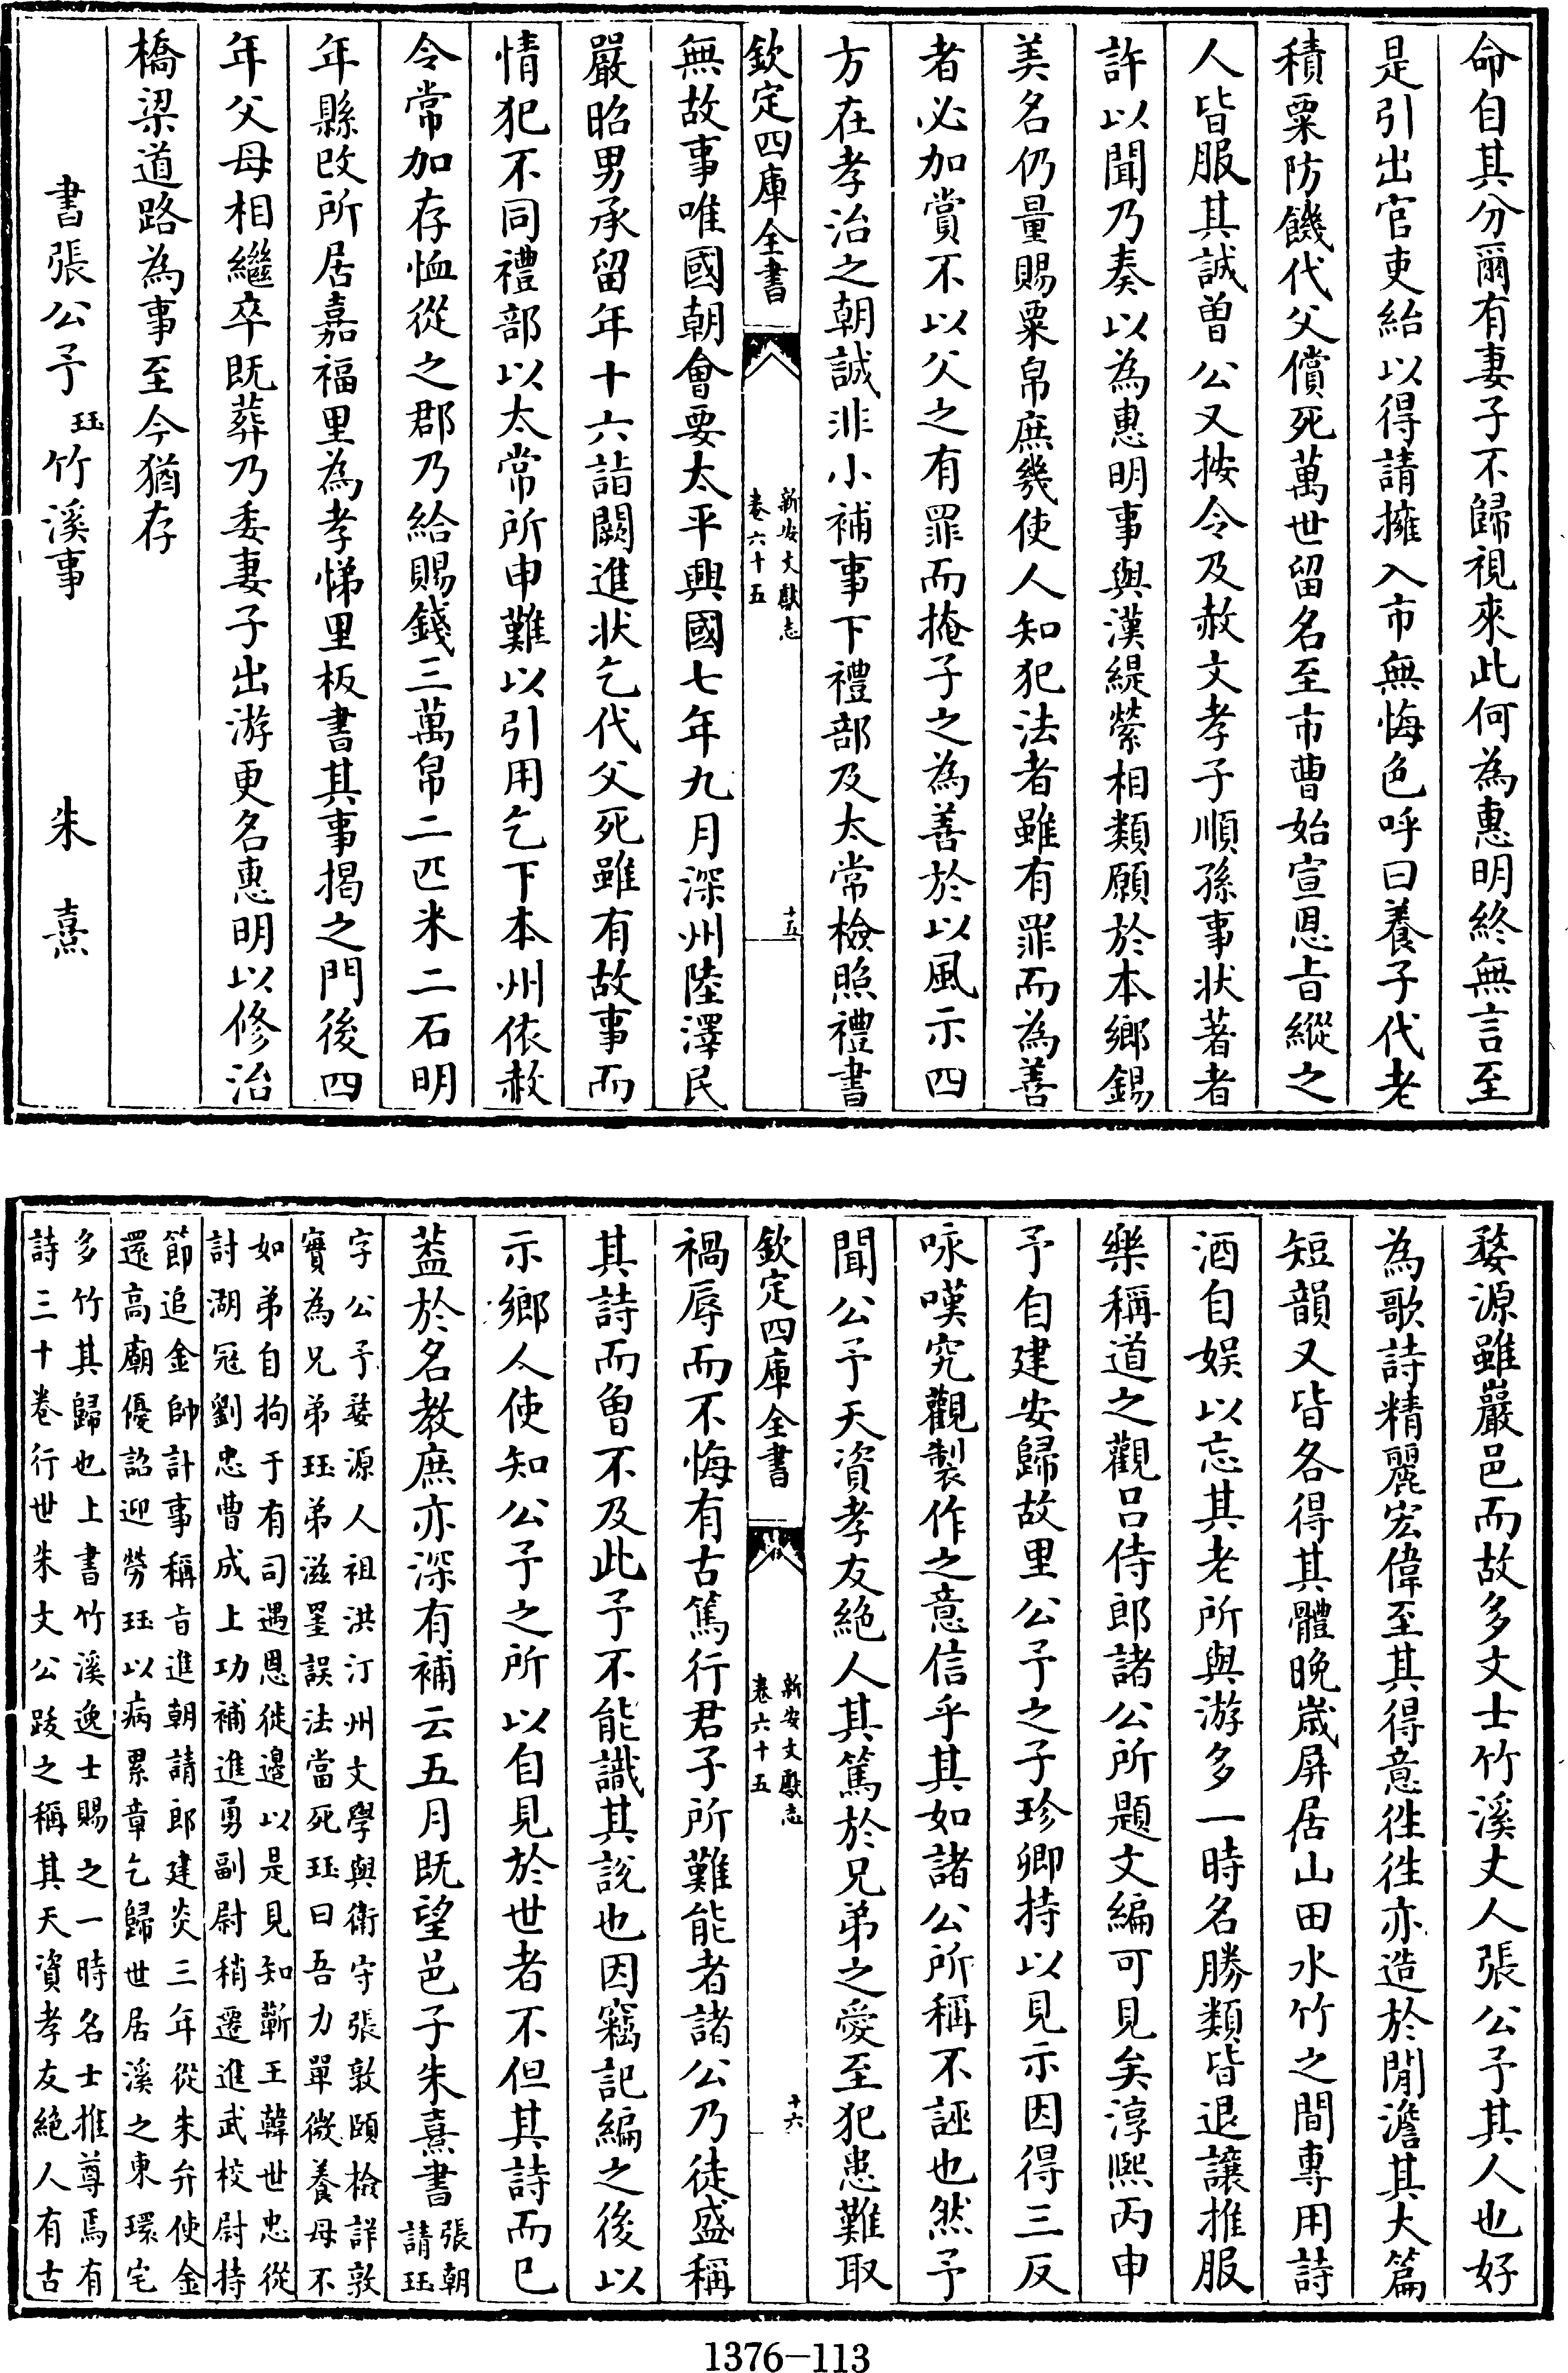 命自其分爾有妻子不歸視來此何為惠明終無言至
是引出官吏紿以得請擁入市無悔色呼曰養子代老
積粟防饑代父償死萬世留名至市曹始宣恩㫖縱之
人皆服其誠曾公又按令及赦文孝子順孫事状著者
許以聞乃奏以為惠明事與漢緹縈相類願於本鄉錫
美名仍量賜粟帛庶幾使人知犯法者雖有罪而為善
者必加賞不以父之有罪而掩子之為善於以風示四
方在孝治之朝誠非小補事下禮部及太常檢照禮書
欽定四庫全書
新安文獻志
卷六十五
十五
無故事唯國朝會要太平興國七年九月深州陸澤民
嚴昭男承留年十六詣闕進状乞代父死雖有故事而
情犯不同禮部以太常所申難以引用乞下本州依赦
令常加存恤從之郡乃給賜錢三萬帛二匹米二石明
年縣改所居嘉福里為孝悌里板書其事揭之門後四
年父母相繼卒既葬乃委妻子出游更名惠明以修治
橋梁道路為事至今猶存
書張公予珏竹溪事 朱熹
婺源雖巖邑而故多文士竹溪丈人張公予其人也好
為歌詩精麗宏偉至其得意徃徃亦造於閒澹其大篇
短韻又皆各得其體晚嵗屏居山田水竹之間專用詩
酒自娱以忘其老所與游多一時名勝類皆退讓推服
樂稱道之觀吕侍郎諸公所題文編可見矣淳熙丙申
予自建安歸故里公予之子珍卿持以見示因得三反
咏嘆究觀製作之意信乎其如諸公所稱不誣也然予
聞公予天資孝友絶人其篤於兄弟之愛至犯患難取
欽定四庫全書
新安文獻志
卷六十五
十六
禍辱而不悔有古篤行君子所難能者諸公乃徒盛稱
其詩而曾不及此予不能識其說也因竊記編之後以
示鄉人使知公予之所以自見於世者不但其詩而已
葢於名教庶亦深有補云五月既望邑子朱熹書張朝
請珏
字公予婺源人祖洪汀州文學與衛守張敦頤檢詳敦
實為兄弟珏弟滋罣誤法當死珏曰吾力單微養母不
如弟自拘于有司遇恩徙邉以是見知蘄王韓世忠從
討湖冦劉忠曹成上功補進勇副尉稍遷進武校尉持
節追金帥計事稱㫖進朝請郎建炎三年從朱弁使金
還高廟優詔迎勞珏以病累章乞歸世居溪之東環宅
多竹其歸也上書竹溪逸士賜之一時名士推尊焉有
詩三十卷行世朱文公跋之稱其天資孝友絶人有古
1376-113